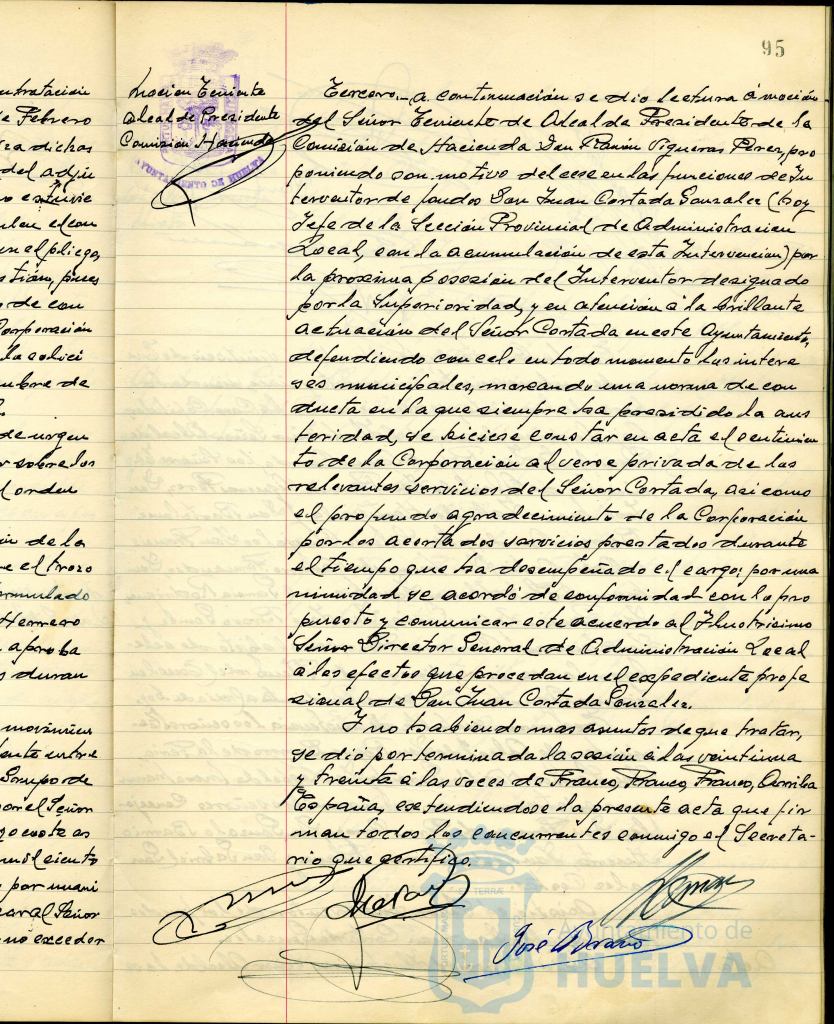 95
ntratación
e Febrero
ra dichas
del adju
o estuvie
en el con
en el pliego
stión, pues
de con
Corporación
la solici
mbre de
de urgen
r sobre los
l orden
in de la
e el trozo
ormulado
Herrero
aproba
s duran
movimien
tante entre
Grupo de
por el Señor
por unani
Señor
no exceder
Mocion Teniente
alcalde Presidente
Comisión Hacienda
AYUNTAMIENTO DE HUELVA
Tercero.- A continuación se dio lectura á moción
del Señor Teniente de Alcalde Presidente de la
Comisión de Hacienda Don Ramón Vigueras Perez, pro
poniendo con motivo del cese en las funciones de In
terventor de fondos Don Juan Cortada Gonzalez (hoy
Jefe de la Sección Provincial de Administracion
Local, con la acumulación de esta Intervención) por
la proxima posesión del Interventor designado
por la Superioridad, y en atención á la brillante
actuación del Señor Cortada en este Ayuntamiento,
defendiendo con celo en todo momento los intere
ses municipales, marcando una norma de con
ducta en la que siempre ha presidido la aus
teridad, se hiciese constar en acta el sentimien
to de la Corporación al verse privada de los
relevantes servicios del Señor Cortada, asi como
el profundo agradecimiento de la Corporación
por los acertados servicios prestados durante
el tiempo que ha desempeñado el cargo; por una
nimidad se acordó de conformidad con lo pro
puesto y comunicar este acuerdo al Ilustrisimo
Señor Director General de Administración Local
á los efectos que procedan en el expediente profe
sional de Don Juan Cortada Gonzalez.
Y no habiendo mas asuntos de que tratar,
se dió por terminada la sesión á las veintiuna
y treinta á las voces de Franco, Franco, Franco, Arriba
España, extendiendose la presente acta que fir
man todos los concurrentes conmigo el Secreta-
rio que certifico.
José
Ayuntamiento de
HUELVA